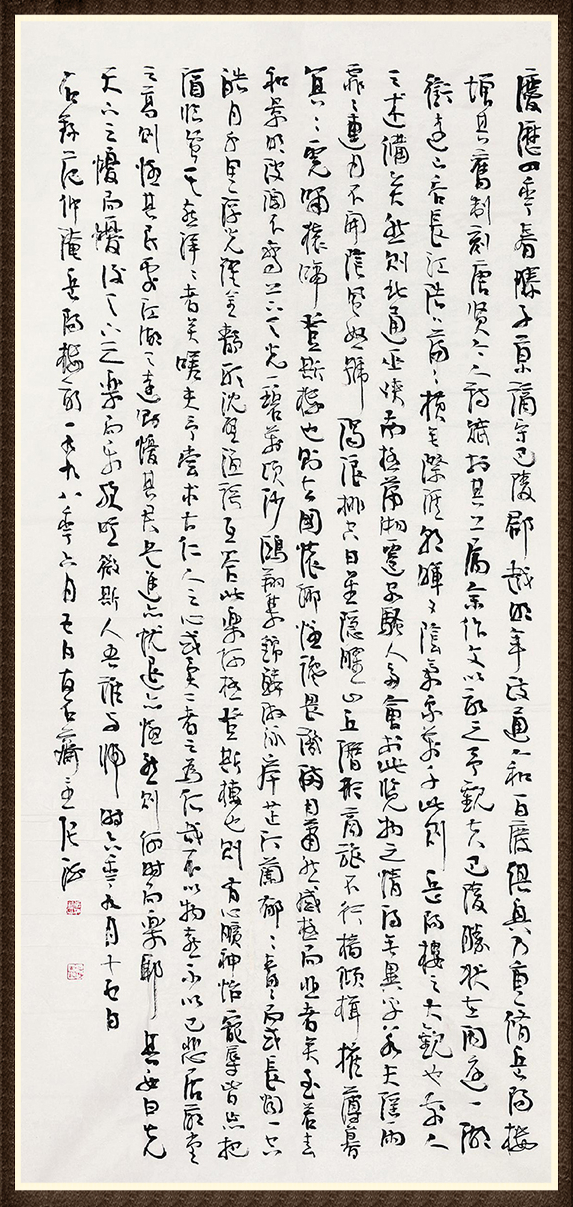 慶曆四年春滕子京謫守巴陵郡越明年政通人和百廢俱興乃重修岳陽樓
增其舊制刻唐賢今人詩賦於其上屬余作文以記之予觀夫巴陵勝狀在洞庭一湖
銜遠山吞長江浩浩蕩蕩橫無際涯朝暉夕陰氣象萬千此則岳陽樓之大觀也前人
之述備矣然則北通巫峽南極瀟湘遷客騷人多會於此覽物之情得無異乎若夫霪雨
霏霏連月不開陰風怒號濁浪排空日星隱曜山丘潛形商旅不行檣傾楫摧薄暮
冥冥虎嘯猿啼登斯樓也則有去國懷鄉憂讒畏譏滿目蕭然感極而悲者矣至若春
和景明波瀾不驚上下天光一碧萬頃沙鷗翔集錦鱗游泳岸芷汀蘭郁郁青青而或長煙一空
皓月千里浮光躍金靜影沈璧漁歌互答此樂何極登斯樓也則有心曠神怡寵辱皆忘把
酒臨風其喜洋洋者矣嗟夫予嘗求古仁人之心或異二者之為何哉不以物喜不以己悲居廟堂
之高則憂其民處江湖之遠則憂其君是進亦憂退亦憂然則何時而樂耶其必曰先
天下之憂而憂後天下之樂而樂歟噫微斯人吾誰與歸時六年九月十五日
右錄范仲淹岳陽樓記一九九八年六月五日石齋主張